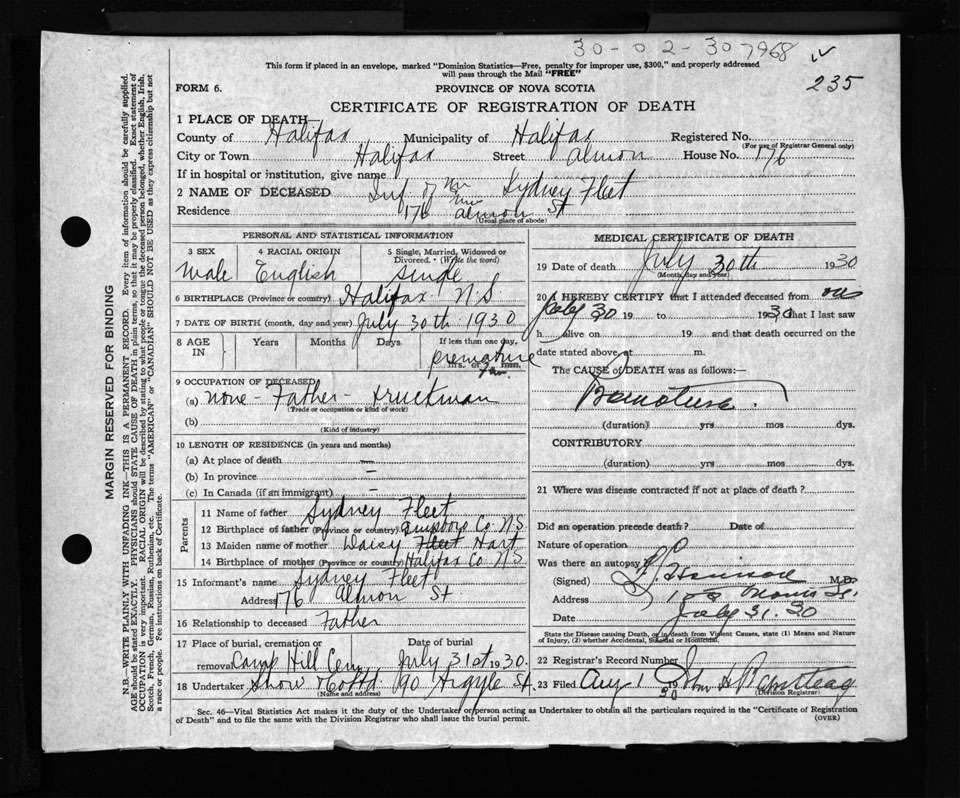 30-02-307968
This form if placed in an envelope, marked "Dominion Statistics—Free, penalty for improper use, $300," and properly addressed
will pass through the Mail "FREE"
235
FORM 6.
PROVINCE OF NOVA SCOTIA
CERTIFICATE OF REGISTRATION OF DEATH
1 PLACE OF DEATH
County of Halifax Municipality of Halifax Registered No.
(For use of Registrar General only)
City or Town Halifax Street Almon House No. 176
If in hospital or institution, give name
2 NAME OF DECEASED Inf of Mr Mrs Sydney Fleet
Residence 176 Almon St
(Usual place of abode)
PERSONAL AND STATISTICAL INFORMATION
3 SEX 4 RACIAL ORIGIN 5 Single, Married, Widowed or Divorced. (Write the word)
Male English Single
6 BIRTHPLACE (Province or country) Halifax N.S
7 DATE OF BIRTH (month, day and year) July 30th 1930
8 AGE IN Years Months Days If less than one day,
premature
hrs. or min.
9 OCCUPATION OF DECEASED
(a) none - Father - truckman
(Trade or occupation or kind of work)
(b)
(Kind of industry)
10 LENGTH OF RESIDENCE (in years and months)
(a) At place of death —
(b) In province —
(c) In Canada (if an immigrant) -
Parents
11 Name of father Sydney Fleet
12 Birthplace of father (Province or country) Co N.S.
13 Maiden name of mother Daisy Fleet Hart
14 Birthplace of mother (Province or country) Halifax Co N.S
15 Informant's name Sydney Fleet
Address 176 Almon St
16 Relationship to deceased Father
17 Place of burial, cremation or Date of burial
removal Camp Hill Cem July 31st 1930.
18 Undertaker Snow & Co Ltd 90 Argyle St.
(Name and address)
MEDICAL CERTIFICATE OF DEATH
19 Date of death July 30th 1930
(Month, day and year)
20 I HEREBY CERTIFY that I attended deceased from on
July 30 19 to 1930 that I last saw
h alive on 19 and that death occurred on the
date stated above at m.
The CAUSE of DEATH was as follows:—
Premature.
(duration) yrs mos dys.
CONTRIBUTORY
(duration) yrs mos dys.
21 Where was disease contracted if not at place of death?
Did an operation precede death? Date of
Nature of operation
Was there an autopsy?
(Signed) M.D.
Address Morris St.
Date July 31. 30
State the Disease causing Death, or in death from Violent Causes, state (1) Means and Nature
of Injury, (2) whether Accidental, Suicidal or Homicidal.
22 Registrar's Record Number
23 Filed Aug 1 30 John H
(Division Registrar)
Sec. 46—Vital Statistics Act makes it the duty of the Undertaker or person acting as Undertaker to obtain all the particulars required in the "Certificate of Registration
of Death" and to file the same with the Division Registrar who shall issue the burial permit.
(OVER)
MARGIN RESERVED FOR BINDING
N.B.—WRITE PLAINLY WITH UNFADING INK—THIS IS A PERMANENT RECORD. Every item of information should be carefully supplied.
AGE should be stated EXACTLY. PHYSICIANS should STATE CAUSE OF DEATH in plain terms, so that it may be properly classified. Exact statement of
OCCUPATION is very important. RACIAL ORIGIN will be described by stating to what people or tongue the deceased person belonged, whether English, Irish,
Scotch, French, German, Russian, Ruthenian, etc. The terms "AMERICAN" or "CANADIAN" SHOULD NOT BE USED as they express citizenship but not
a race or people. Fee instructions on back of Certificate.